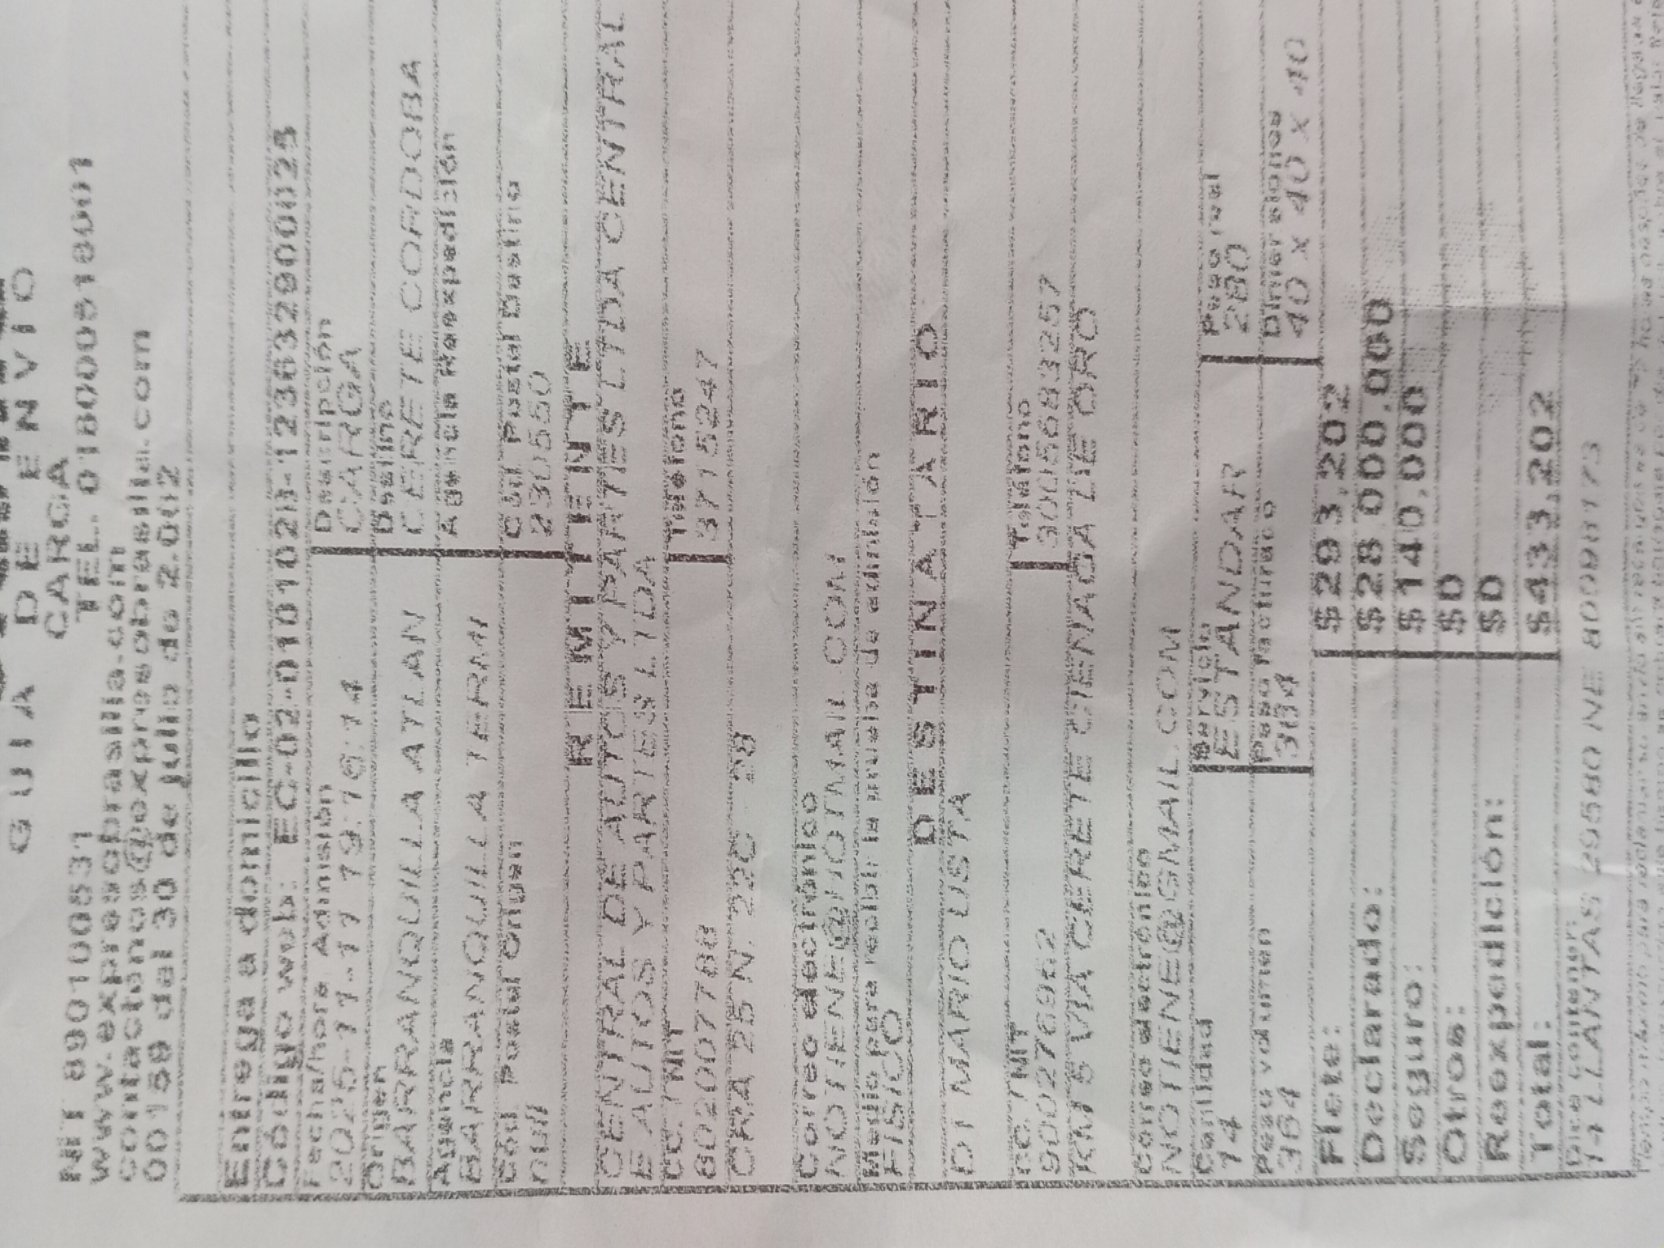 GUIA DE ENVIO
CARGA
NIT 890100531 TEL. 018000518001
www.expresobrasilia.com
contactenos@expresobrasilia.com
00159 del 30 de julio de 2.002
Entrega a domicilio
Código web:
Fecha/hora Admisión Descripción
CARGA
Origen Destino
BARRANQUILLA ATLAN CERETE CORDOBA
Agencia Agencia Reexpedición
BARRANQUILLA TERMI
Cód. Postal Origen Cód. Postal Destino
null 230550
REMITENTE
CENTRAL DE AUTOS Y PARTES LTDA CENTRAL
E AUTOS Y PARTES LTDA
CC. / NIT Teléfono
8020007788 3715247
Correo electrónico
NOTIENE@HOTMAIL.COM
Medio para recibir la prueba de admisión
FISICO
DESTINATARIO
D1 MARIO USTA
CC. / NIT Teléfono
900276962 3005683257
KM 6 VIA CERETE CIENAGA DE ORO
Correo electronico
NOTIENE@GMAIL.COM
Cantidad Servicio Peso real
14 ESTANDAR 280
Peso volumen Peso facturado Dimensiones
364 304 40 X 40 X 40
Flete: $293,202
Declarado: $28,000,000
Seguro: $140,000
Otros: $0
Reexpedición: $0
Total: $433,202
Dice contener:
14 LLANTAS